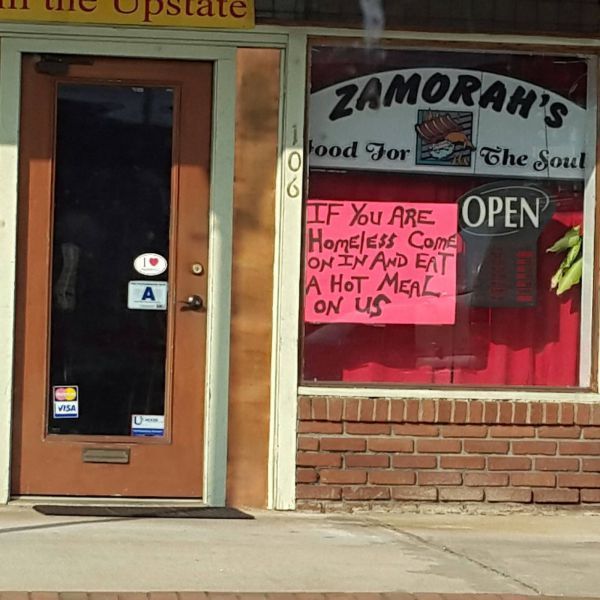 in the Upstate
ZAMORAH'S
Food For The Soul
106
OPEN
IF YoU ARE
HomelESS ComE
ON IN AND EAT
A HoT MEAL
ON US
I ♥
A
VISA